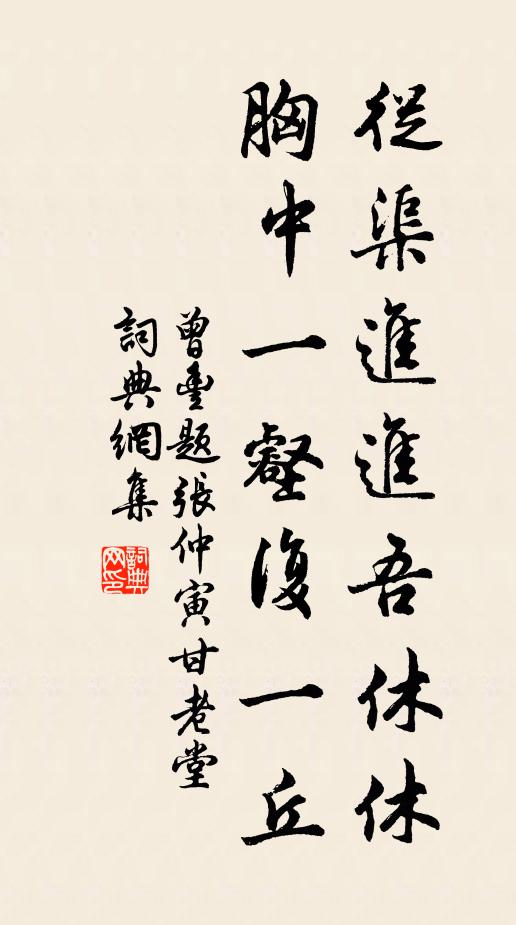 從渠進進吾休休
胸中一壑復一丘
曾豐題張仲寅甘老堂
詞典網集
詞典網印